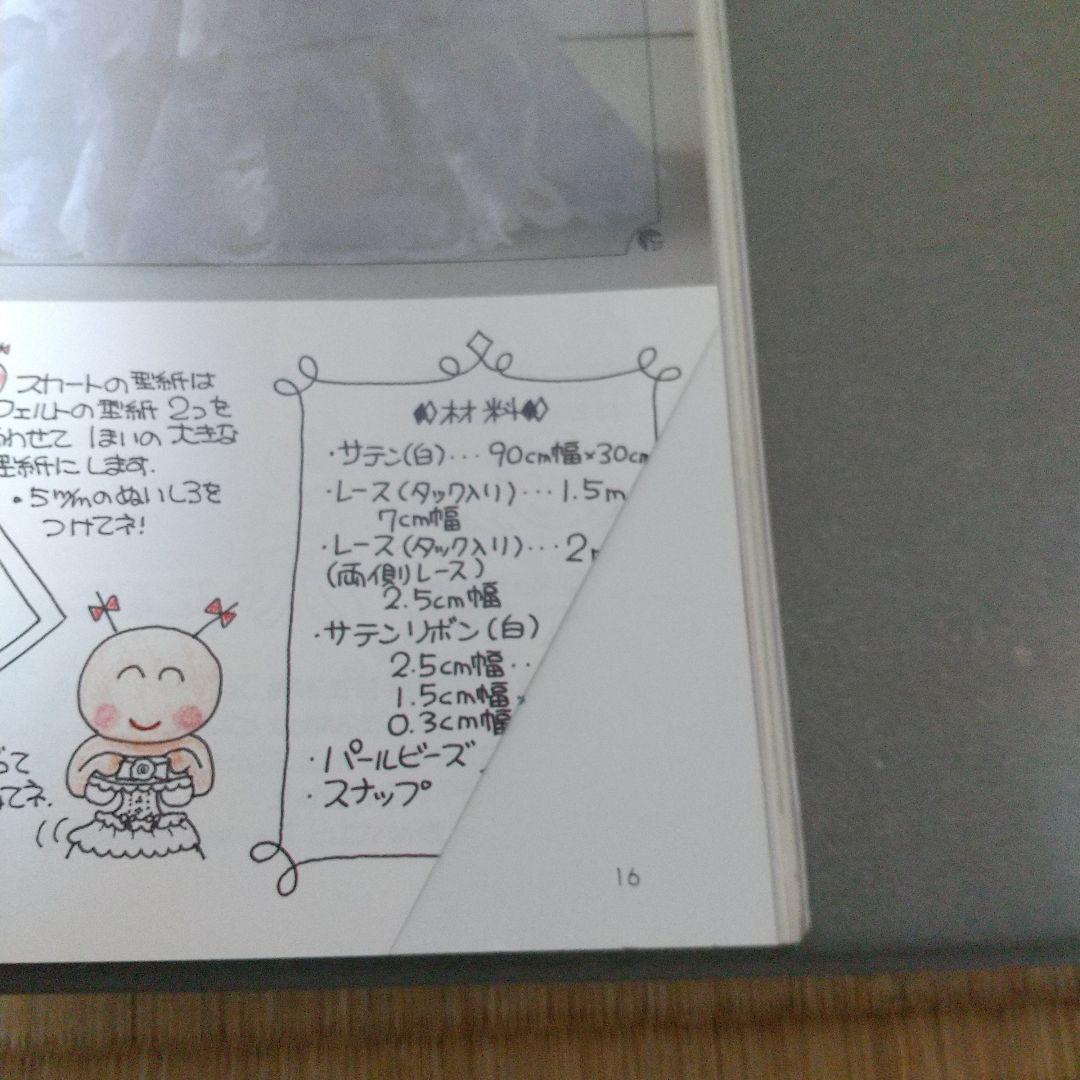 スカートの型紙は
フェルトの型紙 2つを
わせて 1まいの 大きな
型紙にします.
・5m/mのぬいしろを
つけてネ!
って
てネ.
材料
・サテン(白)...90cm幅×30cm
・レース(タック入り)...1.5m
7cm幅
・レース(タック入り)...2
(両側レース)
2.5cm幅
・サテンリボン(白)
2.5cm幅..
1.5cm幅
0.3cm幅
・パールビーズ
・スナップ
16